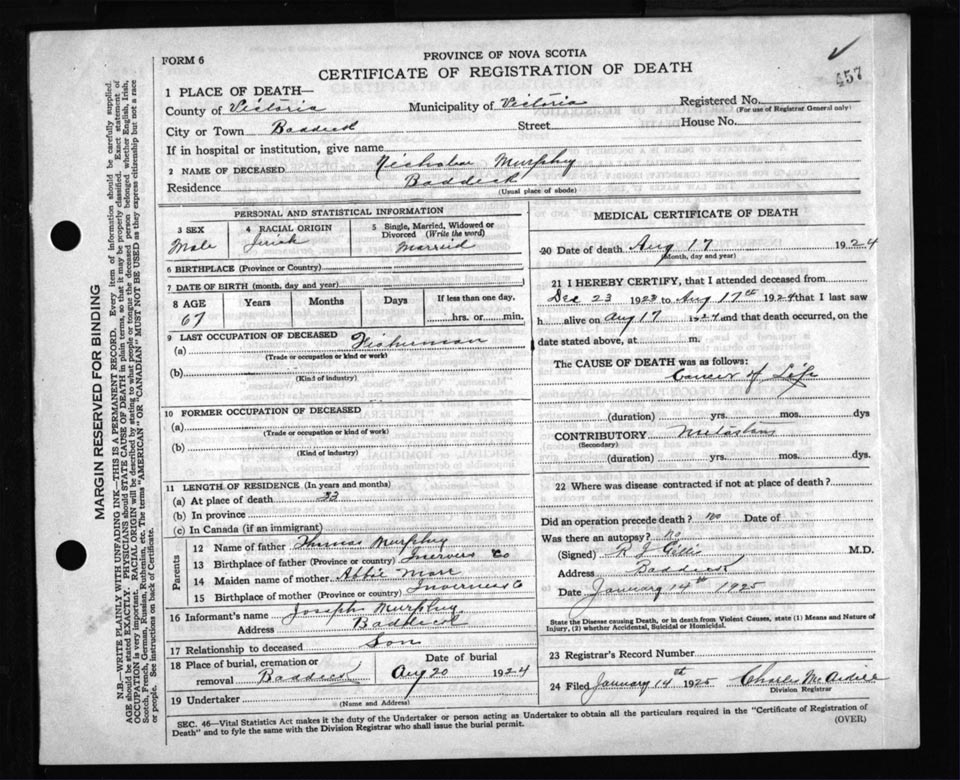 FORM 6
PROVINCE OF NOVA SCOTIA
457
CERTIFICATE OF REGISTRATION OF DEATH
1 PLACE OF DEATH—
County of Victoria Municipality of Victoria Registered No.
(For use of Registrar General only)
City or Town Baddeck Street House No.
If in hospital or institution, give name
2 NAME OF DECEASED Nicholas Murphy
Residence Baddeck
(Usual place of abode)
PERSONAL AND STATISTICAL INFORMATION
3 SEX 4 RACIAL ORIGIN 5 Single, Married, Widowed or Divorced (Write the word)
Male Irish Married
6 BIRTHPLACE (Province or Country)
7 DATE OF BIRTH (month, day and year)
8 AGE Years Months Days If less than one day.
67 hrs. or min.
9 LAST OCCUPATION OF DECEASED
(a) Fisherman
(Trade or occupation or kind or work)
(b)
(Kind of industry)
10 FORMER OCCUPATION OF DECEASED
(a)
(Trade or occupation or kind or work)
(b)
(Kind of industry)
11 LENGTH OF RESIDENCE (In years and months)
(a) At place of death 33
(b) In province
(c) In Canada (if an immigrant)
Parents
12 Name of father Thomas Murphy
13 Birthplace of father (Province or country) Inverness Co
14 Maiden name of mother Abbie
15 Birthplace of mother (Province or country) Inverness Co
16 Informant's name Joseph Murphy
Address Baddeck
17 Relationship to deceased Son
18 Place of burial, cremation or removal Baddeck
Date of burial
Aug 20 1924
19 Undertaker
(Name and Address)
MEDICAL CERTIFICATE OF DEATH
20 Date of death Aug 17 1924
(Month, day and year)
21 I HEREBY CERTIFY, that I attended deceased from
Dec 23 1923 to Aug 17th 1924 that I last saw
h alive on Aug 17 1924 and that death occurred, on the
date stated above, at m.
The CAUSE OF DEATH was as follows:
Cancer of Lip
(duration) yrs. mos. dys
CONTRIBUTORY
(Secondary)
(duration) yrs. mos. dys.
22 Where was disease contracted if not at place of death?
Did an operation precede death? no Date of
Was there an autopsy? no
(Signed) R J Gillis M.D.
Address Baddeck
Date January 14th 1925
State the Disease causing Death, or in death from Violent Causes, state (1) Means and Nature of
Injury, (2) whether Accidental, Suicidal or Homicidal.
23 Registrar's Record Number
24 Filed January 14th 1925 Charles
Division Registrar
SEC. 46—Vital Statistics Act makes it the duty of the Undertaker or person acting as Undertaker to obtain all the particulars required in the "Certificate of Registration of
Death" and to fyle the same with the Division Registrar who shall issue the burial permit.
(OVER)
MARGIN RESERVED FOR BINDING
N.B.—WRITE PLAINLY WITH UNFADING INK—THIS IS A PERMANENT RECORD. Every item of information should be carefully supplied.
AGE should be stated EXACTLY. PHYSICIANS should STATE CAUSE OF DEATH in plain terms, so that it may be properly classified. Exact statement of
OCCUPATION is very important. RACIAL ORIGIN will be described by stating to what people or tongue the deceased person belonged whether English, Irish,
Scotch, French, German, Russian, Ruthenian, etc. The terms "AMERICAN" OR "CANADIAN" MUST NOT BE USED as they express citizenship but not a race
or people. See instructions on back of Certificate.